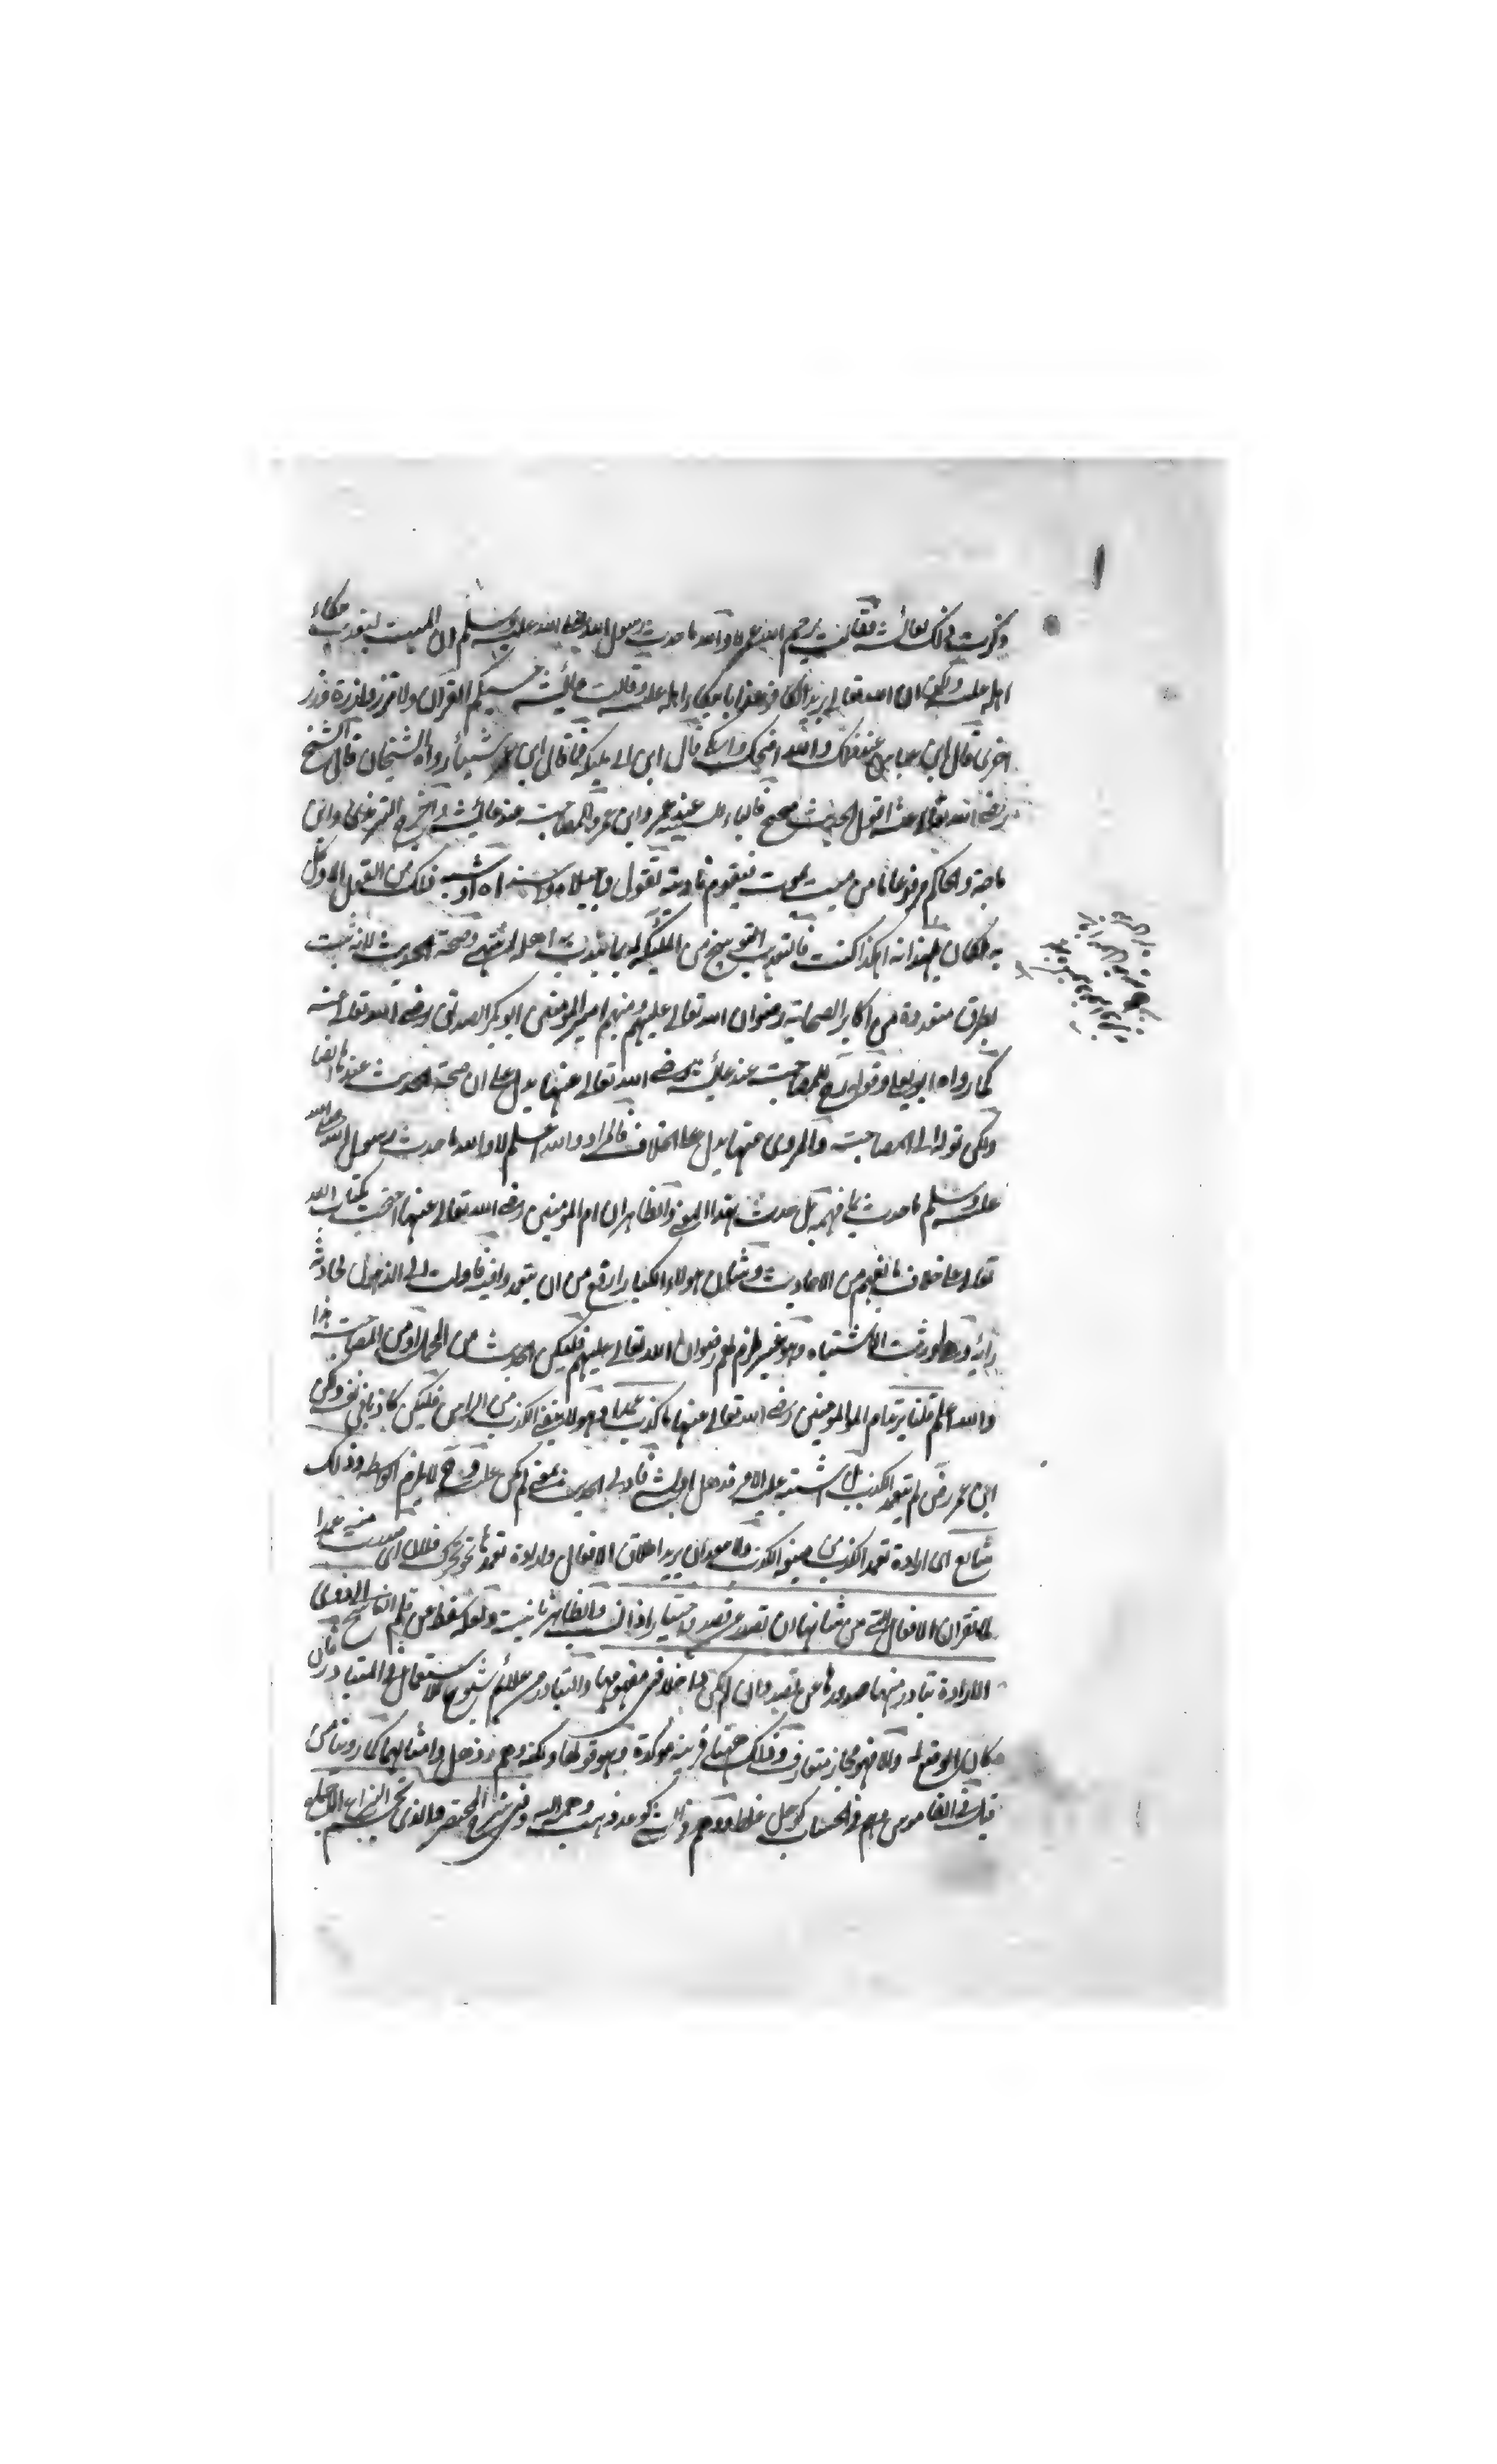 وذكرت ذلك لعائشة فقالت يرحم الله عمر لا والله ما حدث رسول الله صلى الله عليه وسلم ان الميت ليعذب ببكاء
اهله عليه ولكن ان الله تعالى يزيد الكافر عذابا ببكاء اهله عليه وقالت عائشة حسبكم القرآن ولا تزر وازرة وزر
اخرى قال ابن عباس عند ذلك والله اضحك وابكى قال ابن ابي مليكة فما قال ابن عمر شيئا رواه الشيخان قال الشيخ
رضى الله تعالى عنه اقول الحديث صحيح فالباء عند عمر وابن عمر وللمصاحبة عند عائشة اخرج الترمذي وابن
ماجة والحاكم مرفوعا ما من ميت يموت فيقوم نادبته تقول وا جبلاه وا سنداه او شبه ذلك من القول الا وكل
به ملكان يلهزانه اهكذا كنت فالتعذيب التوبيخ من الملائكة له بما يندب به اهله انتهى وصحة الحديث لانه ثبت
بطرق متعددة من اكابر الصحابة رضوان الله تعالى عليهم ومنهم امير المؤمنين ابو بكر الصديق رضى الله تعالى عنه
كما رواه ابو يعلى وقوله للمصاحبة عند عائشة رضى الله تعالى عنها يدل على ان صحة الحديث عندها ايضا
ولكن تؤله الى المصاحبة والمروى عنها يدل على الخلاف فالمراد والله اعلم لا والله ما حدث رسول الله صلى الله
عليه وسلم ما حدث على فهمه بل حدث بهذا المعنى والظاهر ان ام المؤمنين رضى الله تعالى عنها احتجت بكتاب الله
تعالى على خلاف ما نفهم من الاحاديث وشان هولاء الكبار ارفع من ان يتعمدوا فيه فاولت الى الذهول لحادثة
رأته اورثت الاشتباه وهو غير لازم لهم رضوان الله تعالى عليهم فليكن الحديث من المحمل او من المصاحبة هذا
والله اعلم قلنا يريد ام المؤمنين رضى الله تعالى عنها ما كذب عمدا فهو لا ينفى الكذب من الراس فليكن كاذبا فى نفسه ولكن
ابن عمر رض لم يتعمد الكذب بل اشتبه عليه الامر فذهل او نسى فادى الحديث بمعنى لم يكن عليه فى لا يلزم الواسطة وذلك
شائع اى ارادة تعمد الكذب من صيغة الكذب ولا بعد ان يريد اطلاق الافعال وارادة تعمدها نحو تحرك فلان اى صدرت منه عمدا
لا تقران الافعال التى من شانها ان تصدر عن قصد واختيار اذا نسبت والظاهر ما نسبت ولعله سقط من قلم الناسخ الى ذوى
الارادة يتبادر منها صدورها عن قصد وان لم يكن داخلا فى مفهومها والتبادر من علائم شيوع الاستعمال فى المتبادر فان
كان الوضع له والا فهو مجاز متعارف وذلك ههنا قرينة موكدة وهو قولها ولكنه وهم او ذهل وامثالهما كما روينا من
قبل فى القاموس وهم فى الحساب كوجل غلط ووهم فى الشئ كوعد ذهب وهمه اليه وفى شرح المختصر والذى يحسم النزاع الاجماع